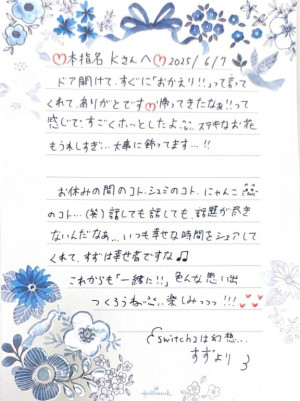 ♡本指名 Kさんへ♡ 2025/6/7
ドア開けて、すぐに「おかえり!!」って言って
くれて、ありがとです♡帰ってきたなぁ!!って
感じで、すごくホッとしたよ... ステキなお花
もうれしすぎ...大事に飾ってます...!!
お休みの間のコト、シュミのコト、にゃんこ
のコト...(笑)話しても話しても、話題が尽き
ないんだなぁ...いつも幸せな時間をシェアして
くれて、すずは幸せ者ですな♫
これからも「一緒に!!」色んな思い出
つくろうね... 楽しみっっっ!!!
switch2は幻想...
すずより
Hallmark